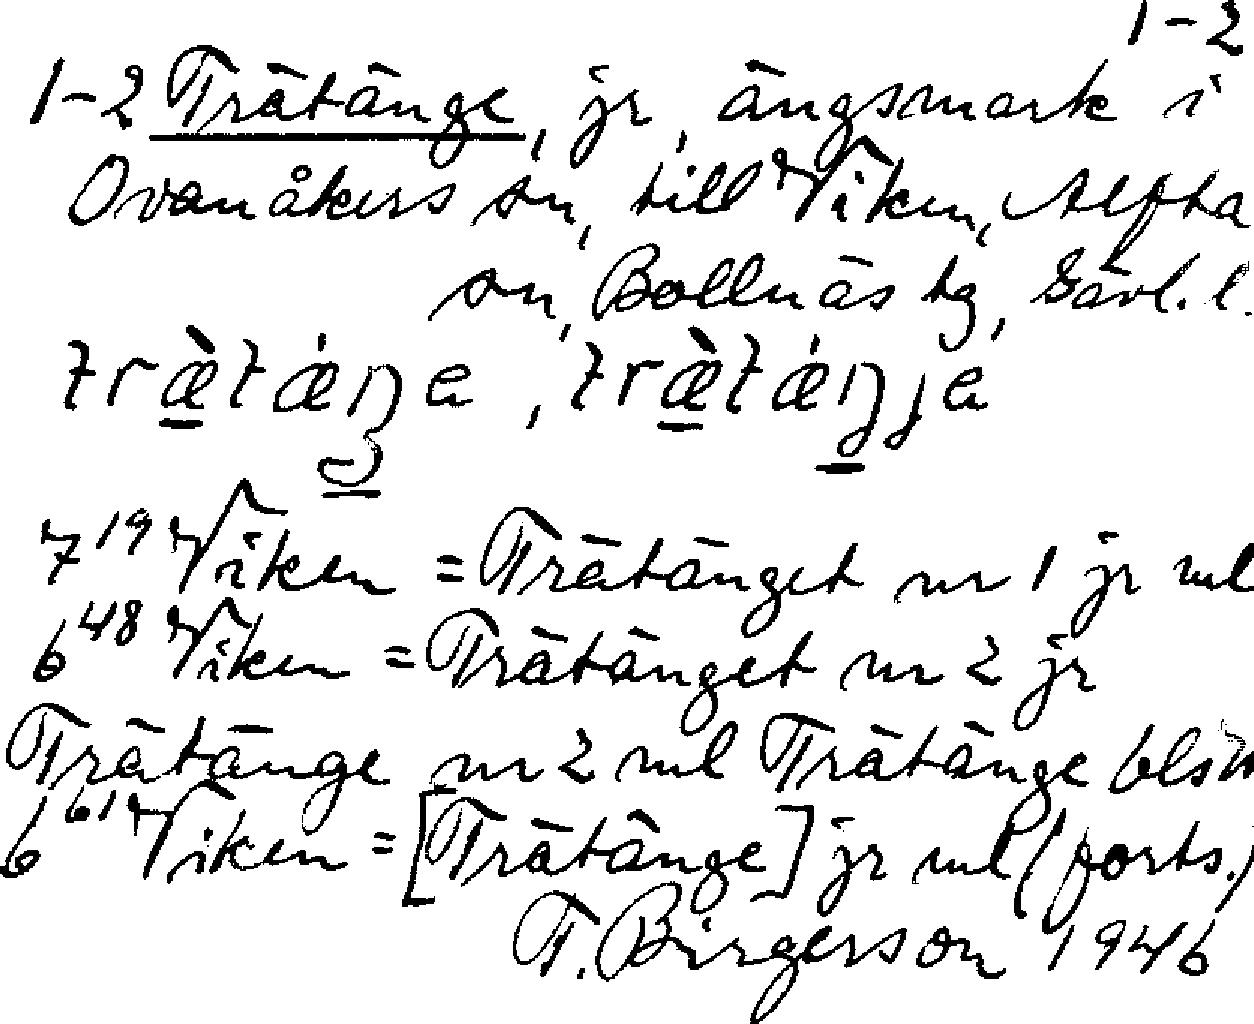 1-2
1-2 Trätänge, jr, ängsmark i
Ovanåkers sn, till Viken, Alfta
sn, Bollnäs tg, Gävl. l.
7¹⁹ Viken = Trätänget nr 1 jr ml
6⁴⁸ Viken = Trätänget nr 2 jr
Trätänge nr 2 ml Trätänge blsm
6⁶¹ Viken = [Trätänge] jr ml (forts.)
T. Birgerson 1946